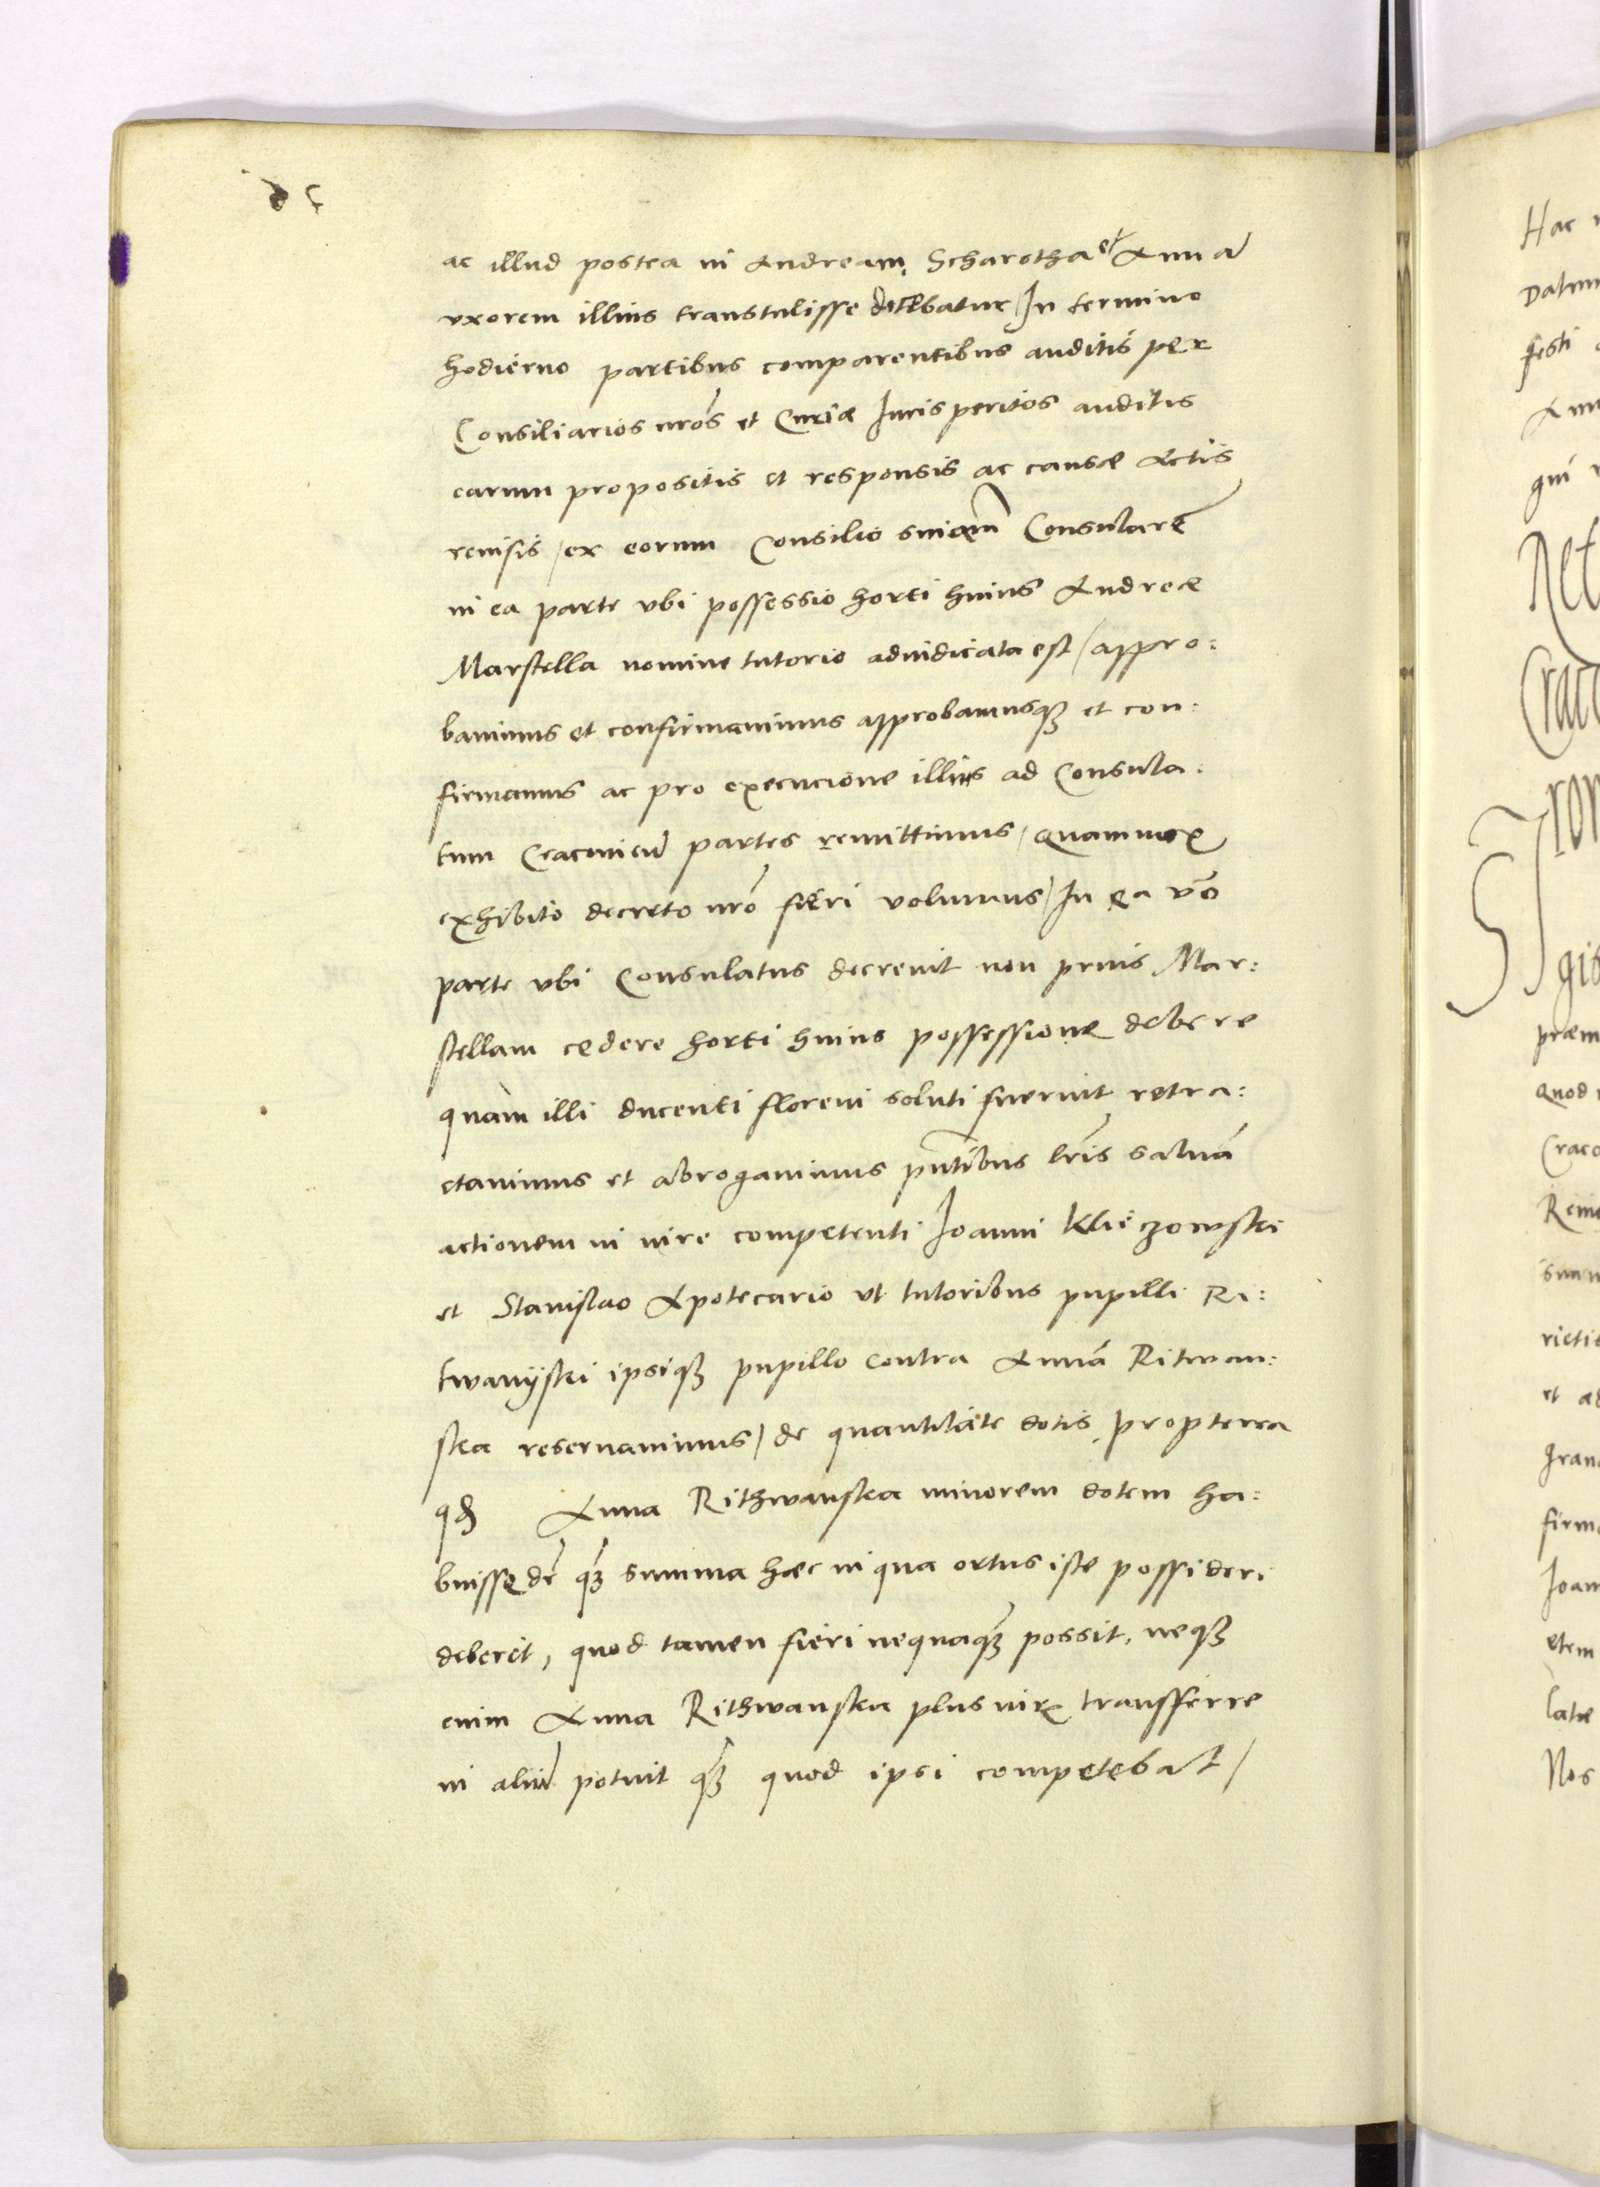 ac illud postea in Andream Scharotha et Annā
uxorem illius transtulisse dicebatur / In termino
hodierno partibus comparentibus auditis per
Consiliarios nros et Curiæ Iurisperitos auditis
earum propositis et responsis ac causæ Actis
reuisis / ex eorum Consilio sniam Consularē
in ea parte vbi possessio horti huius Andreæ
Marstella nomine tutorio adiudicata est / appro:
bauimus et confirmauimus approbamusq et con:
firmamus ac pro execucione illius ad Consula:
tum Cracouień partes remittimus / quam mox
exhibito decreto nro fieri volumus / In ea vo
parte vbi Consulatus decreuit non prius Mar:
stellam cedere horti huius possessione debere
quam illi ducenti floreni soluti fuerint retra:
ctauimus et abrogauimus pntibus lris saluā
actionem in iure competenti Ioanni Kliczowskij
et Stanislao Apotecario vt tutoribus pupilli Ri:
twanijski ipsiq pupillo contra Annā Ritwan:
ska reseruauimus / de quantitate dotis propterea
qd Anna Rithwanska minorem dotem ha:
buisse dr qz summa hæc in qua ortus iste possideri
deberet, quod tamen fieri nequaqz possit, neqz
enim Anna Rithwanska plus iuris transferre
in aliū potuit qz quod ipsi competebat /
Hac
Datum
festi
Ann
qui
Rel
Crac
SI
gis
præm
quod
Craco
Remi
suam
rictis
et ad
Iran
firma
Ioan
etem
latæ
Nos